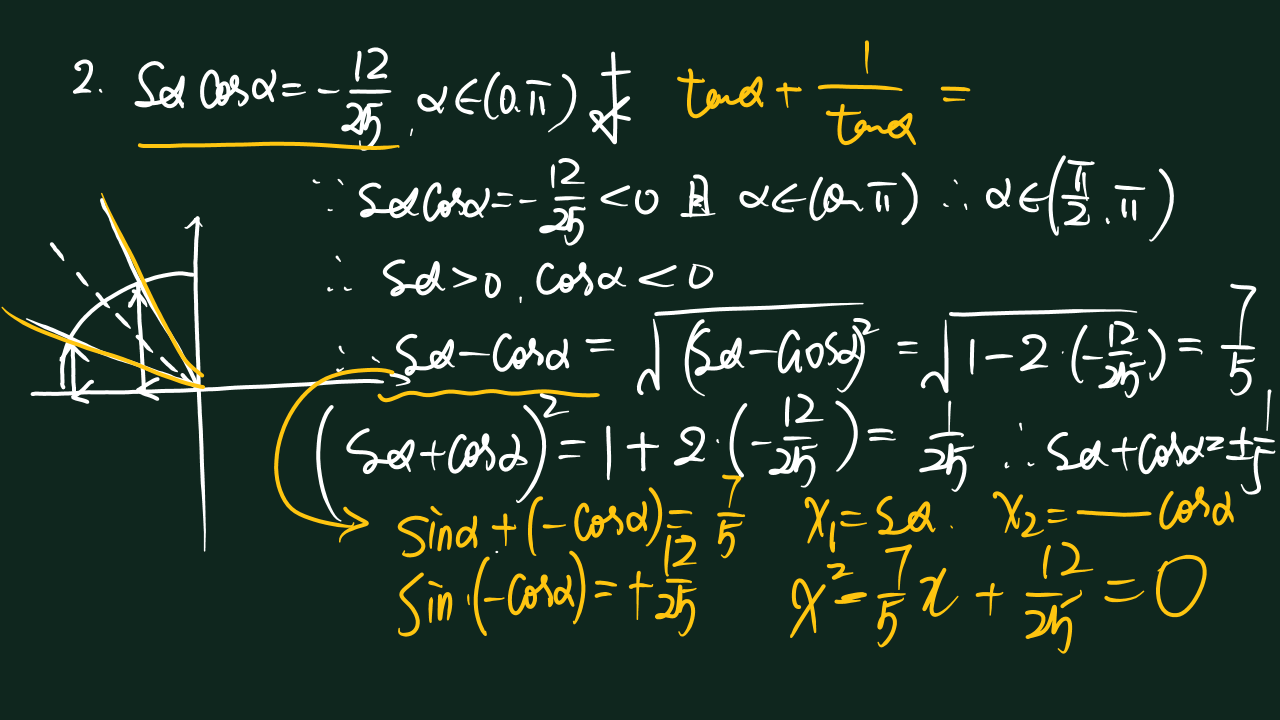 2. Sα cosα = -12/25, α∈(0.π) 求 tanα + 1/tanα =
∵ Sα cosα = -12/25 < 0 且 α∈(0.π) ∴ α∈(π/2.π)
∴ Sα > 0, cosα < 0
∴ Sα - cosα = √(Sα - cosα)² = √1-2·(-12/25) = 7/5
(Sα + cosα)² = 1 + 2·(-12/25) = 1/25 ∴ Sα + cosα = ±1/5
sinα + (-cosα) = 7/5 x₁ = Sα. x₂ = —cosα
sin·(-cosα) = +12/25 x² - 7/5 x + 12/25 = 0